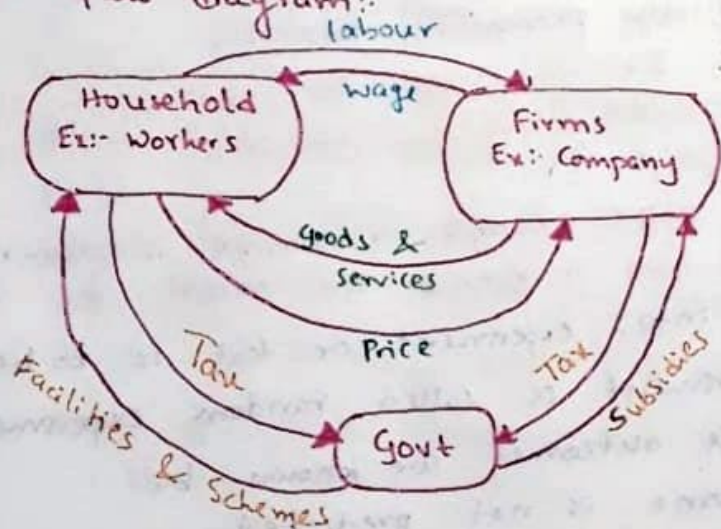 Flow Diagram:-
labour
wage
Household
Ex:- Workers
Firms
Ex:- Company
Goods &
Services
Price
Tax
Tax
Facilities & Schemes
Subsidies
Govt